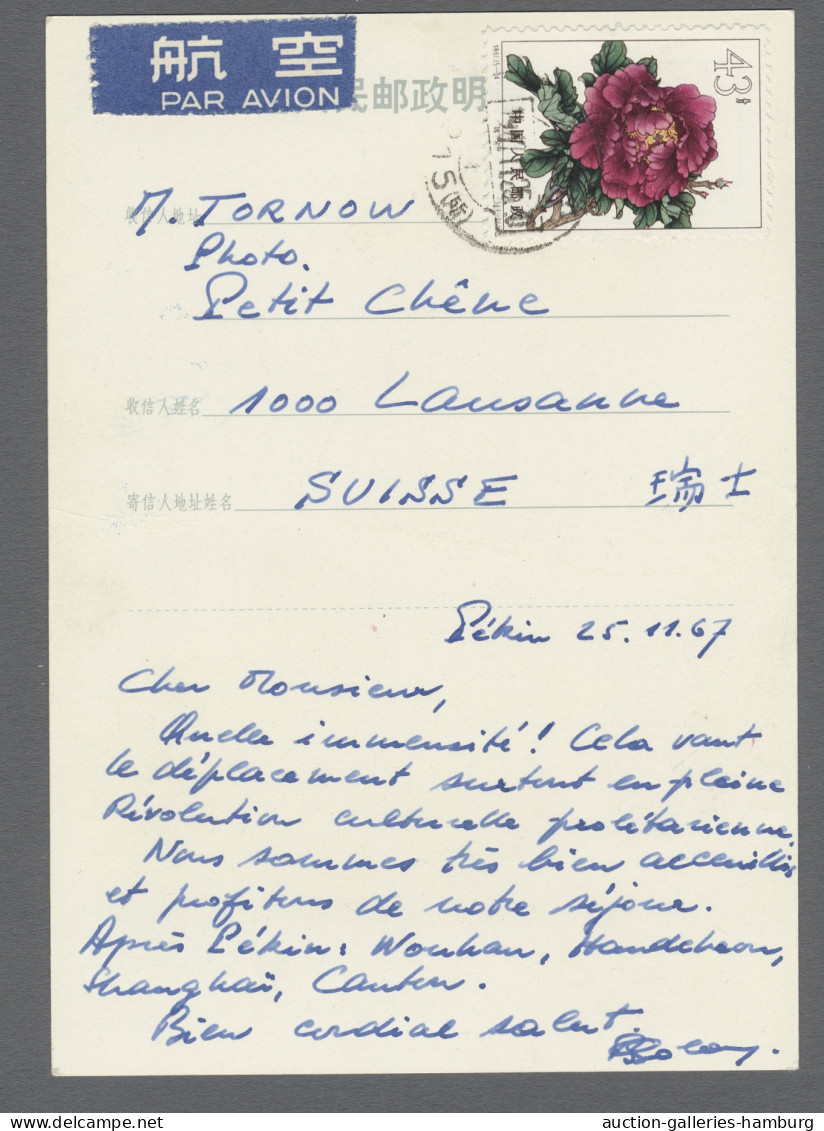 航空
PAR AVION
民邮政明
43分
中国人民邮政
收信人地址
M. TORNOW
Photo.
Petit Chêne
收信人姓名 1000 Lausanne
寄信人地址姓名 SUISSE 瑞士
Pékin 25.11.67
Cher Monsieur,
Quelle immensité! Cela vaut
le déplacement surtout en pleine
Révolution culturelle prolétarienne.
Nous sommes très bien accueillis
et profitons de notre séjour.
Après Pékin: Wouhan, Handcheou,
Shanghaï, Canton.
Bien cordial salut.
auction-galleries-hamburg